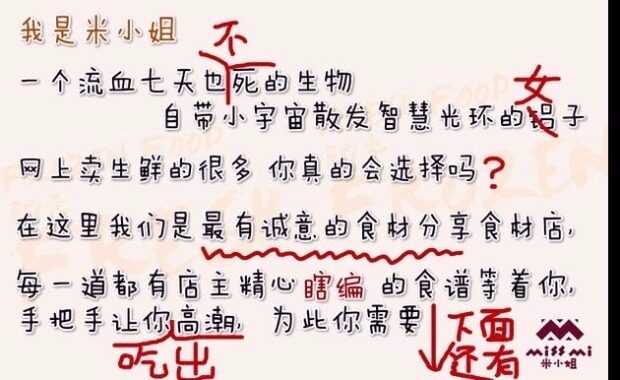 我是米小姐
一个流血七天也不死的生物
自带小宇宙散发智慧光环的铝子
女
网上卖生鲜的很多 你真的会选择吗?
在这里我们是最有诚意的食材分享食材店,
每一道都有店主精心瞎编的食谱等着你,
手把手让你高潮, 为此你需要
吃出
下面
还有
miss mi
米小姐